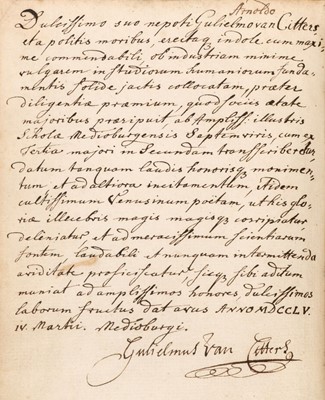 Arnoldo
Dulcissimo suo nepoti Gulielmo van Citters
et a politis moribus erectaq indole cum maxi-
me commendabili, ob industriam minime
vulgarem in studiorum humaniorum funda-
mentis solide jactis collocatam, præter
diligentiæ præmium, quod sociis ætate
majoribus præripuit ab Ampliss. illustris
Scholæ Medioburgensis Septemviris, cum ex
Tertia majori in Secundam transscriberetur
datum tanquam laudis honorisq monimen-
tum, et ad altiora incitamentum Fidem
cultissimum Venusinum poëtam, ut his glo-
riæ illecebris magis magisq corripiatur
deleniatur, et ad meracissimum scientiarum
fontem, laudabili et nunquam intermittenda
aviditate proficiscatur sicq sibi aditum
muniat ad amplissimos honores, dulcissimos
laborum fructus dat avus ANNO MDCCLV.
IV. Martii. Medioburgi.
Gulielmus van Citters